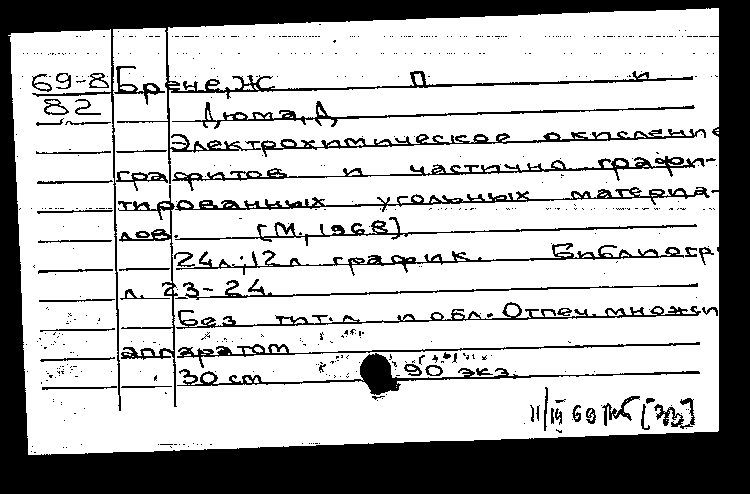 69-8 Брене, Ж П и
82 Дюма, Д
Электрохимическое окисление
графитов и частично графи-
тированных угольных материа-
лов. [М., 1968].
24 л.; 12 л. график. Библиогр
л. 23-24.
Без тит. л и обл. Отпеч. множит
аппаратом
30 см 90 экз.
11/III 69